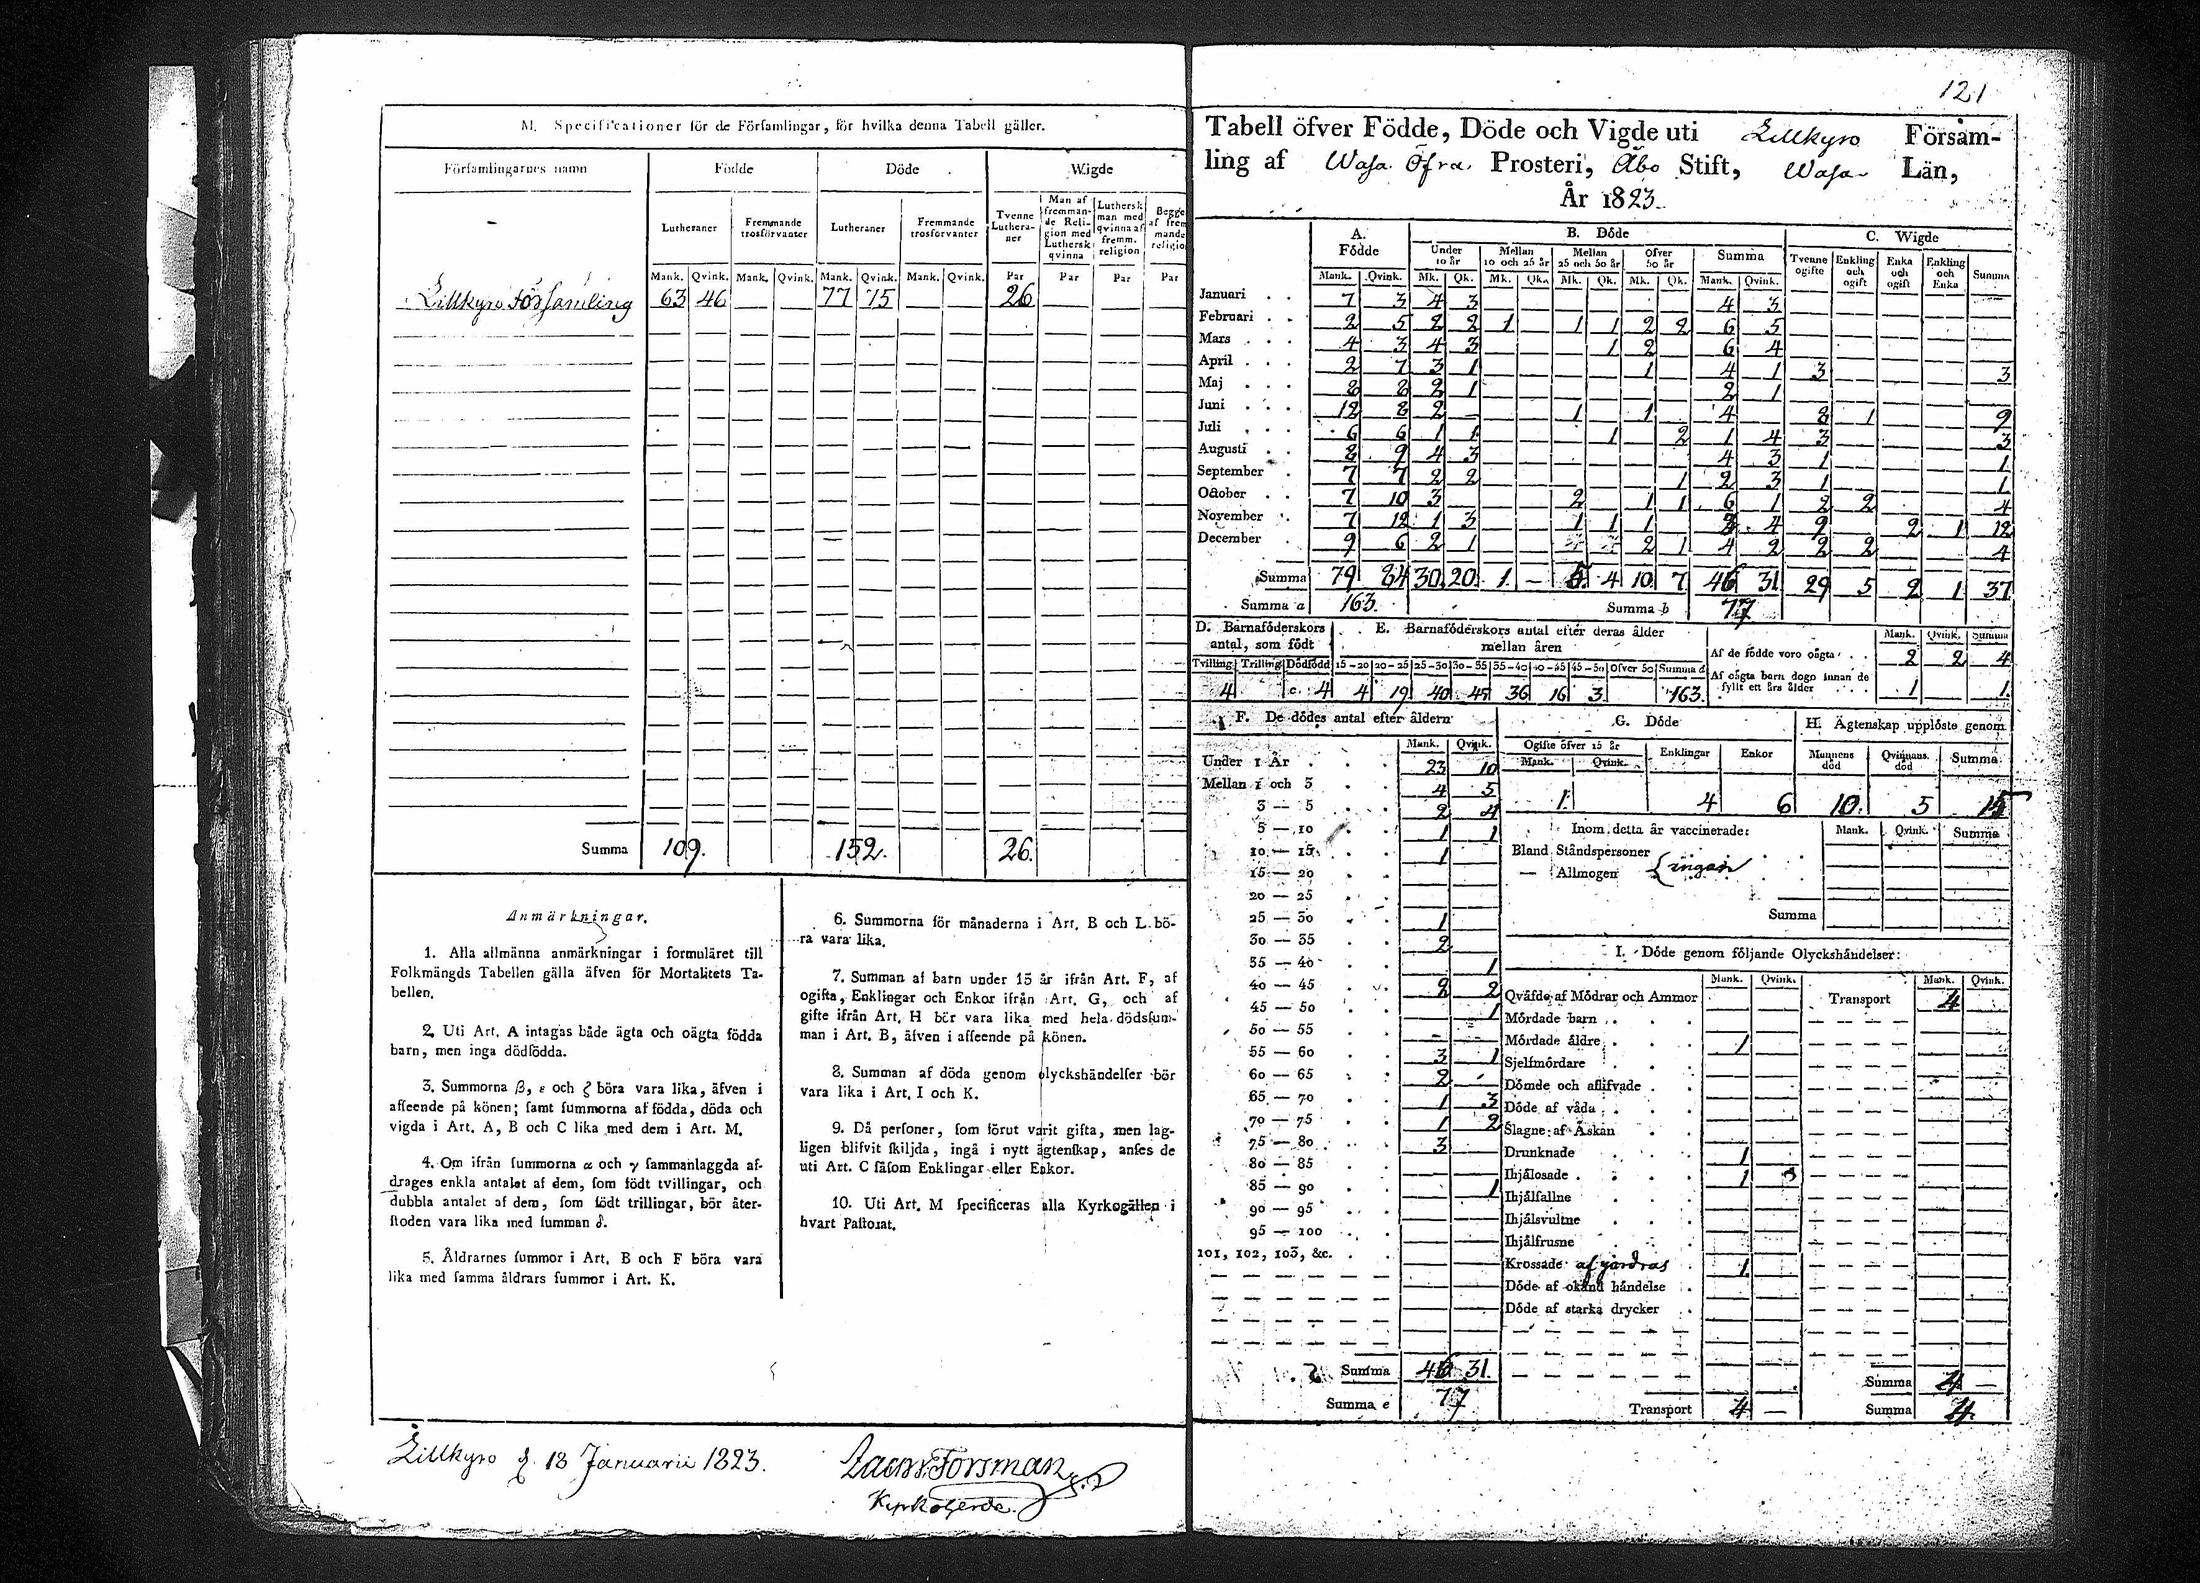 M. Specificationer för de Församlingar, för hvilka denna Tabell gäller.
Församlingarnes namn | Födde | Döde | Wigde
Lutheraner | Fremmande trosförvanter | Lutheraner | Fremmande trosförvanter | Tvenne Lutheraner | Man af fremmande Religion med Luthersk qvinna | Luthersk man med qvinna af fremm. religion | Begge af fremmande religio
Mank. Qvink. Mank. Qvink. Mank. Qvink. Mank. Qvink. Par Par Par Par
Lillkyro Församling 63 46 77 75 26
Summa 109. 152. 26.
Anmärkningar.
1. Alla allmänna anmärkningar i formuläret till
Folkmängds Tabellen gälla äfven för Mortalitets Ta-
bellen.
2. Uti Art. A intagas både ägta och oägta födda
barn, men inga dödfödda.
3. Summorna β, ε och ζ böra vara lika, äfven i
afseende på könen; samt summorna af födda, döda och
vigda i Art. A, B och C lika med dem i Art. M.
4. Om ifrån summorna α och γ sammanlaggda af-
drages enkla antalet af dem, som födt tvillingar, och
dubbla antalet af dem, som födt trillingar, bör åter-
stoden vara lika med summan δ.
5. Åldrarnes summor i Art. B och F böra vara
lika med samma åldrars summor i Art. K.
6. Summorna för månaderna i Art. B och L bö-
ra vara lika.
7. Summan af barn under 15 år ifrån Art. F, af
ogifta, Enklingar och Enkor ifrån Art. G, och af
gifte ifrån Art. H bör vara lika med hela dödssum-
man i Art. B, äfven i afseende på könen.
8. Summan af döda genom olyckshändelser bör
vara lika i Art. I och K.
9. Då personer, som förut varit gifta, men lag-
ligen blifvit skiljda, ingå i nytt ägtenskap, anses de
uti Art. C såsom Enklingar eller Enkor.
10. Uti Art. M specificeras alla Kyrkogällen i
hvart Pastorat.
Lillkyro d. 18 Januarii 1823.
Forsman
Kyrkoherde.
121
Tabell öfver Födde, Döde och Vigde uti Lillkyro Försam-
ling af Wasa Öfra Prosteri, Åbo Stift, Wasa Län,
År 1823.
A. Födde | B. Döde | C. Wigde
Under 10 år | Mellan 10 och 25 år | Mellan 25 och 50 år | Öfver 50 år | Summa | Tvenne ogifte | Enkling och ogift | Enka och ogift | Enkling och Enka | Summa
Mank. Qvink. Mk. Qk. Mk. Qk. Mk. Qk. Mk. Qk. Mank. Qvink.
Januari 7 3 4 3 4 3
Februari 2 5 2 2 1 1 1 2 2 6 5
Mars 4 3 4 3 1 2 6 4
April 2 7 3 1 1 4 1 3 3
Maj 8 8 2 1 2 1
Juni 12 8 2 1 1 4 8 1 9
Juli 6 6 1 1 1 2 1 4 3 3
Augusti 8 9 4 3 4 3 1 1
September 7 7 2 2 1 2 3 1 1
October 7 10 3 2 1 1 6 1 2 2 4
November 7 12 1 3 1 1 1 3 4 9 2 1 12
December 9 6 2 1 2 1 4 2 2 2 4
Summa 79 84 30 20 1 - 5 4 10 7 46 31 29 5 2 1 37
Summa a 163. Summa b 77
D. Barnaföderskors antal, som födt
Tvilling Trilling Dödfödd
4 4
E. Barnaföderskors antal efter deras ålder mellan åren
15-20 20-25 25-30 30-35 35-40 40-45 45-50 Öfver 50 Summa d
4 19 40 45 36 16 3 163.
Mank. Qvink. Summa
Af de födde voro oägta 2 2 4
Af oägta barn dogo innan de fyllt ett års ålder 1 1.
F. De dödes antal efter åldern
Mank. Qvink.
Under 1 År 23 10
Mellan 1 och 3 4 5
3 — 5 2 4
5 — 10 1 1
10 — 15 1
15 — 20
20 — 25
25 — 30 1
30 — 35 2
35 — 40 1
40 — 45 2 2
45 — 50 1
50 — 55
55 — 60 3 1
60 — 65 2
65 — 70 1 3
70 — 75 1 2
75 — 80 3
80 — 85
85 — 90 1
90 — 95
95 — 100
101, 102, 103, &c.
Summa 46 31.
Summa e 77
G. Döde
Ogifte öfver 15 år | Enklingar | Enkor
Mank. Qvink.
1. 4 6
H. Ägtenskap upplöste genom
Mannens död | Qvinnans död | Summa
10. 5 15
Inom detta år vaccinerade: Mank. Qvink. Summa
Bland Ståndspersoner
— Allmogen { ingen
Summa
I. Döde genom följande Olyckshändelser:
Mank. Qvink. Mank. Qvink.
Qväfde af Mödrar och Ammor Transport 4
Mördade barn
Mördade äldre 1
Sjelfmördare
Dömde och aflifvade
Döde af våda
Slagne af Åskan
Drunknade 1
Ihjälosade 1
Ihjälfallne
Ihjälsvultne
Ihjälfrusne
Krossade 1.
Döde af okänd händelse
Döde af starka drycker
Summa 4 —
Transport 4 — Summa 4.